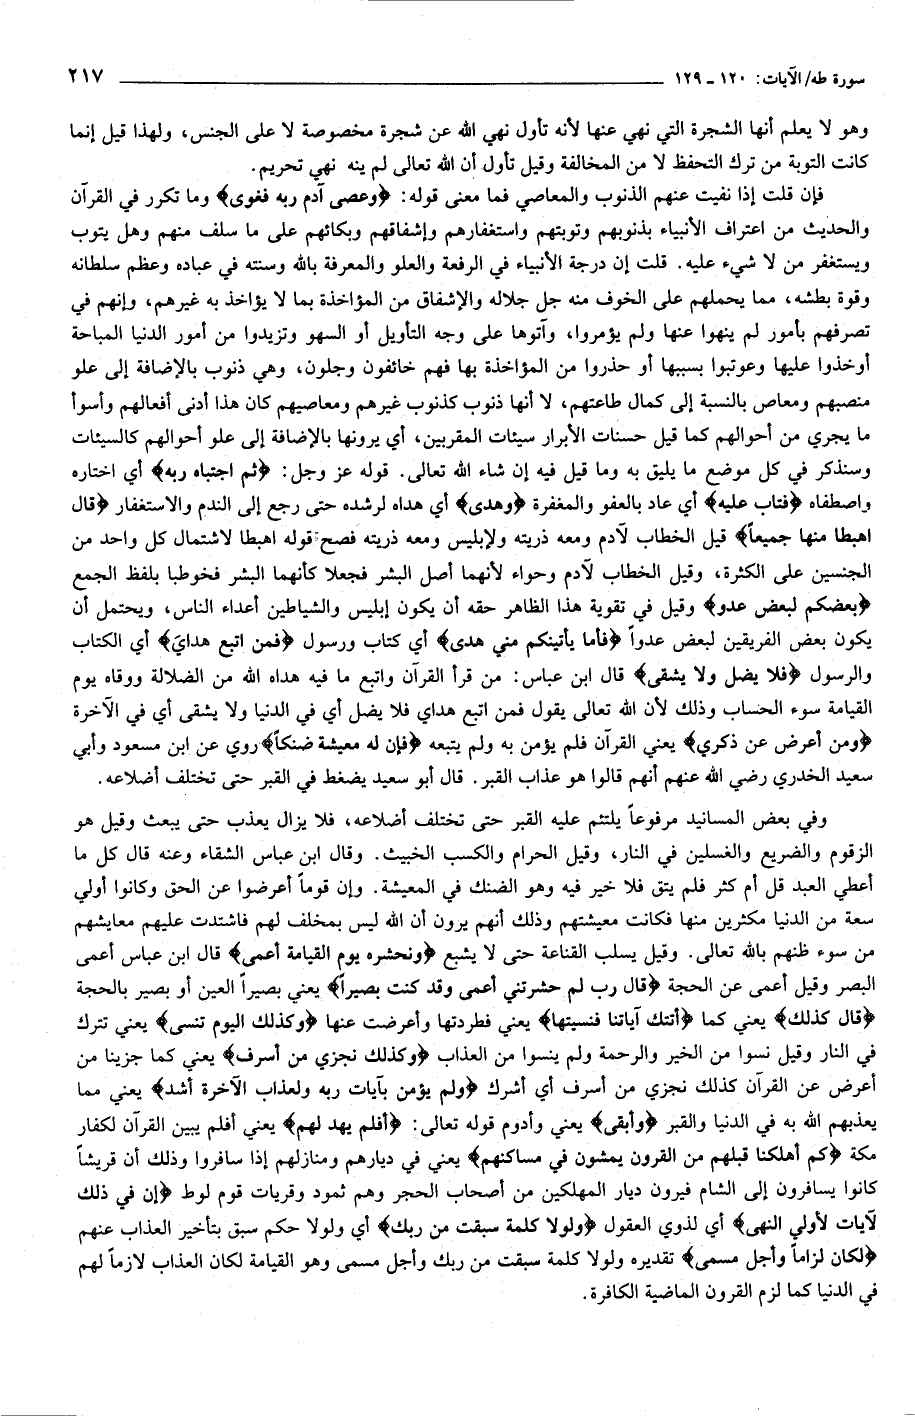 سورة طه/ الآيات: ١٢٠ - ١٢٩ ٢١٧
وهو لا يعلم أنها الشجرة التي نهي عنها لأنه تأول نهي الله عن شجرة مخصوصة لا على الجنس، ولهذا قيل إنما
كانت التوبة من ترك التحفظ لا من المخالفة وقيل تأول أن الله تعالى لم ينه نهي تحريم.
فإن قلت إذا نفيت عنهم الذنوب والمعاصي فما معنى قوله: ﴿وعصى آدم ربه فغوى﴾ وما تكرر في القرآن
والحديث من اعتراف الأنبياء بذنوبهم وتوبتهم واستغفارهم وإشفاقهم وبكائهم على ما سلف منهم وهل يتوب
ويستغفر من لا شيء عليه. قلت إن درجة الأنبياء في الرفعة والعلو والمعرفة بالله وسنته في عباده وعظم سلطانه
وقوة بطشه، مما يحملهم على الخوف منه جل جلاله والإشفاق من المؤاخذة بما لا يؤاخذ به غيرهم، وإنهم في
تصرفهم بأمور لم ينهوا عنها ولم يؤمروا، وآتوها على وجه التأويل أو السهو وتزيدوا من أمور الدنيا المباحة
أوخذوا عليها وعوتبوا بسببها أو حذروا من المؤاخذة بها فهم خائفون وجلون، وهي ذنوب بالإضافة إلى علو
منصبهم ومعاص بالنسبة إلى كمال طاعتهم، لا أنها ذنوب كذنوب غيرهم ومعاصيهم كان هذا أدنى أفعالهم وأسوأ
ما يجري من أحوالهم كما قيل حسنات الأبرار سيئات المقربين، أي يرونها بالإضافة إلى علو أحوالهم كالسيئات
وسنذكر في كل موضع ما يليق به وما قيل فيه إن شاء الله تعالى. قوله عز وجل: ﴿ثم اجتباه ربه﴾ أي اختاره
واصطفاه ﴿فتاب عليه﴾ أي عاد بالعفو والمغفرة ﴿وهدى﴾ أي هداه لرشده حتى رجع إلى الندم والاستغفار ﴿قال
اهبطا منها جميعاً﴾ قيل الخطاب لآدم ومعه ذريته ولإبليس ومعه ذريته فصح قوله اهبطا لاشتمال كل واحد من
الجنسين على الكثرة، وقيل الخطاب لآدم وحواء لأنهما أصل البشر فجعلا كأنهما البشر فخوطبا بلفظ الجمع
﴿بعضكم لبعض عدو﴾ وقيل في تقوية هذا الظاهر حقه أن يكون إبليس والشياطين أعداء الناس، ويحتمل أن
يكون بعض الفريقين لبعض عدواً ﴿فأما يأتينكم مني هدى﴾ أي كتاب ورسول ﴿فمن اتبع هدايَ﴾ أي الكتاب
والرسول ﴿فلا يضل ولا يشقى﴾ قال ابن عباس: من قرأ القرآن واتبع ما فيه هداه الله من الضلالة ووقاه يوم
القيامة سوء الحساب وذلك لأن الله تعالى يقول فمن اتبع هداي فلا يضل أي في الدنيا ولا يشقى أي في الآخرة
﴿ومن أعرض عن ذكري﴾ يعني القرآن فلم يؤمن به ولم يتبعه ﴿فإن له معيشة ضنكاً﴾ روي عن ابن مسعود وأبي
سعيد الخدري رضي الله عنهم أنهم قالوا هو عذاب القبر. قال أبو سعيد يضغط في القبر حتى تختلف أضلاعه.
وفي بعض المسانيد مرفوعاً يلتئم عليه القبر حتى تختلف أضلاعه، فلا يزال يعذب حتى يبعث وقيل هو
الزقوم والضريع والغسلين في النار، وقيل الحرام والكسب الخبيث. وقال ابن عباس الشقاء وعنه قال كل ما
أعطي العبد قل أم كثر فلم يتق فلا خير فيه وهو الضنك في المعيشة. وإن قوماً أعرضوا عن الحق وكانوا أولي
سعة من الدنيا مكثرين منها فكانت معيشتهم وذلك أنهم يرون أن الله ليس بمخلف لهم فاشتدت عليهم معايشهم
من سوء ظنهم بالله تعالى. وقيل يسلب القناعة حتى لا يشبع ﴿ونحشره يوم القيامة أعمى﴾ قال ابن عباس أعمى
البصر وقيل أعمى عن الحجة ﴿قال رب لم حشرتني أعمى وقد كنت بصيراً﴾ يعني بصيراً العين أو بصير بالحجة
﴿قال كذلك﴾ يعني كما ﴿أتتك آياتنا فنسيتها﴾ يعني فطردتها وأعرضت عنها ﴿وكذلك اليوم تنسى﴾ يعني تترك
في النار وقيل نسوا من الخير والرحمة ولم ينسوا من العذاب ﴿وكذلك نجزي من أسرف﴾ يعني كما جزينا من
أعرض عن القرآن كذلك نجزي من أسرف أي أشرك ﴿ولم يؤمن بآيات ربه ولعذاب الآخرة أشد﴾ يعني مما
يعذبهم الله به في الدنيا والقبر ﴿وأبقى﴾ يعني وأدوم قوله تعالى: ﴿أفلم يهد لهم﴾ يعني أفلم يبين القرآن لكفار
مكة ﴿كم أهلكنا قبلهم من القرون يمشون في مساكنهم﴾ يعني في ديارهم ومنازلهم إذا سافروا وذلك أن قريشاً
كانوا يسافرون إلى الشام فيرون ديار المهلكين من أصحاب الحجر وهم ثمود وقريات قوم لوط ﴿إن في ذلك
لآيات لأولي النهى﴾ أي لذوي العقول ﴿ولولا كلمة سبقت من ربك﴾ أي ولولا حكم سبق بتأخير العذاب عنهم
﴿لكان لزاماً وأجل مسمى﴾ تقديره ولولا كلمة سبقت من ربك وأجل مسمى وهو القيامة لكان العذاب لازماً لهم
في الدنيا كما لزم القرون الماضية الكافرة.